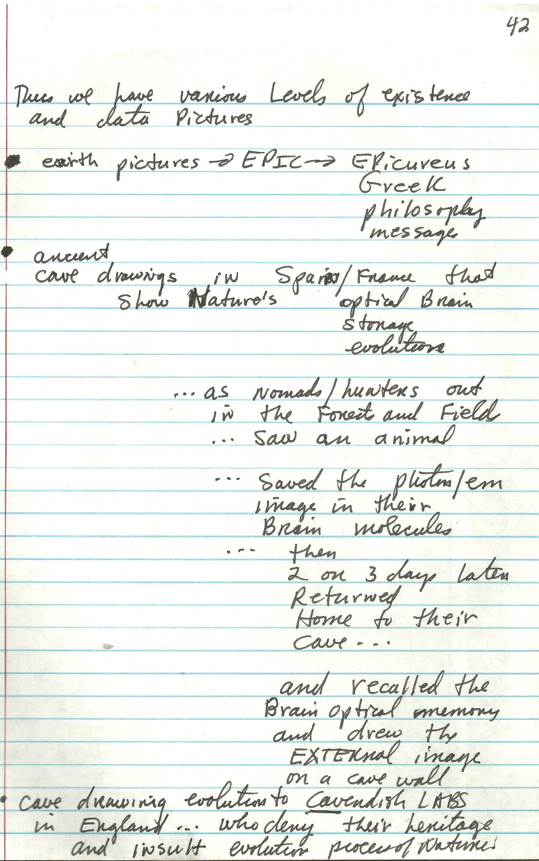 42
Thus we have various Levels of existence
and data Pictures
earth pictures → EPIC → EPicureus
Greek
philosophy
message
ancient
cave drawings in Spain/France that
Show Nature's optical Brain
storage
evolution
... as Nomads/hunters out
in the Forest and Field
... Saw an animal
... Saved the photon/em
image in their
Brain molecules
... then
2 or 3 days later
Returned
Home to their
cave...
and recalled the
Brain optical memory
and drew the
EXTERNAL image
on a cave wall
cave drawing evolution to Cavendish LABS
in England... who deny their heritage
and insult evolution process of Nature